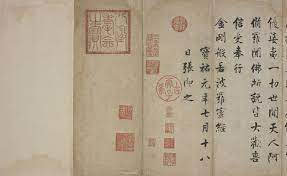 優婆夷一切世間天人阿
脩羅聞佛所說皆大歡喜
信受奉行
金剛般若波羅蜜經
寶祐元年七月十八
日張即之